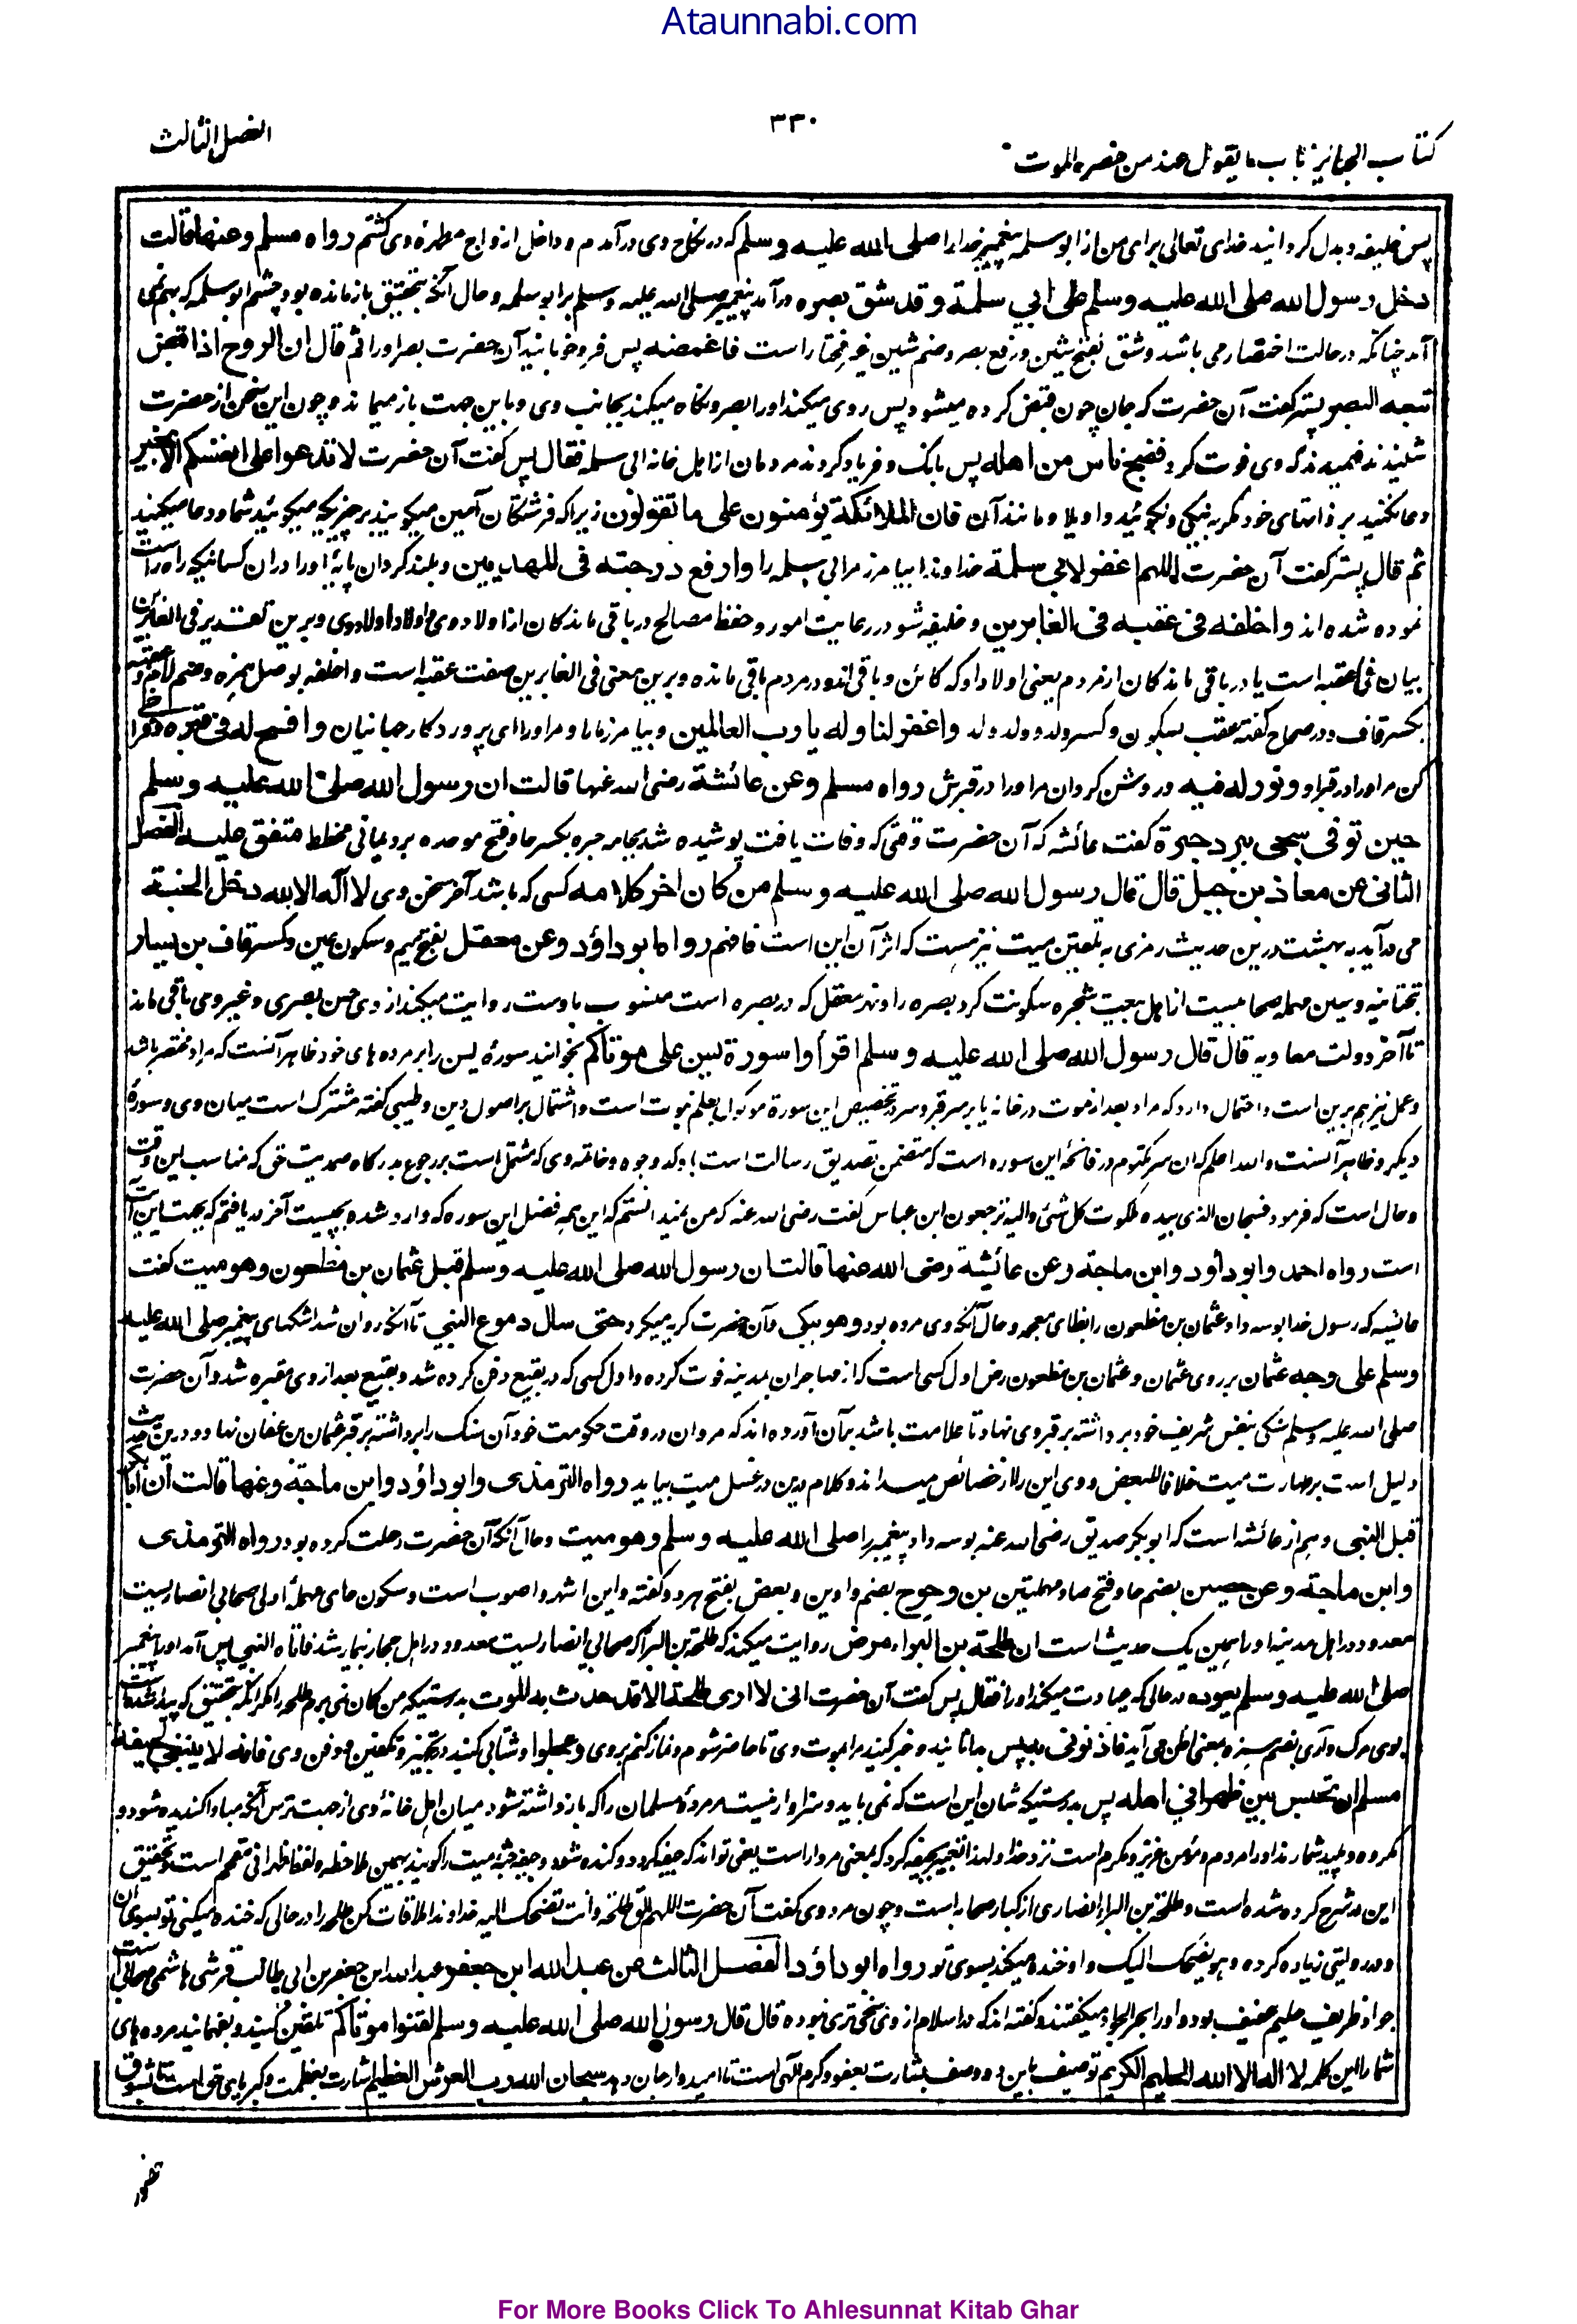 Ataunnabi.com
الفصل الثالث
۳۳۰
کتاب الجنائز باب ما یقول عند من حضره الموت
پس خلیفه و بدل گردانید خدای تعالی برای من از ابو سلمه پیغمبر خدا را صلی الله علیه وسلم که در نکاح وی درآمدم و داخل ازواج مطهره وی گشتم رواه مسلم وعنها قالت
دخل رسول الله صلی الله علیه وسلم علی ابي سلمة وقد شق بصره درآمد پیغمبر صلی الله علیه وسلم بر ابو سلمه و حال آنکه بتحقیق بازمانده بود چشم ابو سلمه که بهم نمی
آمد چنانکه در حالت احتضار می باشد وشق بفتح شین ورفع بصر وضم شین غیر مختار است فاغمضه پس فرو خوابانید آن حضرت بصر او را ثم قال ان الروح اذا قبض
تبعه البصر پستر گفت آن حضرت که جان چون قبض کرده میشود پس روی میکند او را بصر و نگاه میکند بجانب وی و باین جهت باز میماند و چون این سخن از حضرت
شنیدند فهمیدند که وی فوت کرد فضج ناس من اهله پس بانگ و فریاد کردند مردمان از اهل خانه ابی سلمه فقال پس گفت آن حضرت لا تدعوا علی انفسکم الا بخیر
دعا نکنید بر ذاتهای خود مگر به نیکی و نگوئید واویلا و مانند آن فان الملائکة یؤمنون علی ما تقولون زیرا که فرشتگان آمین میگویند بر چیزیکه میگوئید شما و دعا میکنید
ثم قال پستر گفت آن حضرت اللهم اغفر لابي سلمة خداوندا بیامرز مر ابی سلمه را وارفع درجته فی المهدیین و بلند گردان پایه او را در آن کسانیکه راه راست
نموده شده اند واخلفه فی عقبه فی الغابرین و خلیفه شو در رعایت امور و حفظ مصالح در باقی ماندگان از اولاد وی و اولاد اولاد وی و برین تقدیر فی الغابرین
بیان فی عقبه است یا در باقی ماندگان از مردم یعنی اولاد او که کائن و باقی اند در مردم باقی مانده و برین معنی فی الغابرین صفت عقبه است واخلفه بوصل همزه وضم لام وعقبه
بکسر قاف ودر صحاح گفته عقب بسکون وکسر ولد وولد ولد واغفر لنا وله یا رب العالمین و بیامرز ما را و مر او را ای پروردگار جهانیان وافسح له فی قبره وفراخ
کن مر او را در قبر او ونور له فیه و روشن گردان مر او را در قبرش رواه مسلم وعن عائشة رضی الله عنها قالت ان رسول الله صلی الله علیه وسلم
حین توفی سجی ببرد حبرة گفت عائشه که آن حضرت وقتی که وفات یافت پوشیده شد بجامه حبره بکسر حا وفتح موحده برد یمانی مخطط متفق علیه الفصل
الثانی عن معاذ بن جبل قال قال رسول الله صلی الله علیه وسلم من کان اخر کلامه کسی که باشد آخر سخن وی لا اله الا الله دخل الجنة
می درآید به بهشت درین حدیث رمزی به تلقین میت نیز هست که اثر آن این است فافهم رواه ابو داؤد وعن معقل بفتح میم وسکون عین وکسر قاف بن یسار
بتحتانیه وسین مهمله صحابیست از اهل بیعت شجره سکونت کرد بصره را ونهر معقل که در بصره است منسوب باوست روایت میکند از وی حسن بصری وغیر ومی باقی ماند
تا آخر دولت معاویه قال قال رسول الله صلی الله علیه وسلم اقرأوا سورة یس علی موتاکم بخوانید سوره یس را بر مرده های خود ظاهر آنست که مراد محتضر باشد
وعمل نیز هم برین است و احتمال دارد که مراد بعد از موت در خانه یا بر سر قبر وسر تخصیص این سوره موکول بعلم نبوت است واشتمال بر اصول دین وطیبی گفته مشترک است میان وی و سوره
دیگر و ظاهر آنست والله اعلم که آن سر مکتوم در فاتحه این سوره است که متضمن تصدیق رسالت است باوکد وجوه وخاتمه وی که مشتمل است بر رجوع بدرگاه صمدیت حق که مناسب این وقت
وحال است که فرمود فسبحان الذی بیده ملکوت کل شئ والیه ترجعون ابن عباس گفت رضی الله عنه که من نمیدانستم که این همه فضل این سوره که وارد شده بچیست آخر دریافتم که بجهت این آیت
است رواه احمد وابو داود وابن ماجة وعن عائشة رضی الله عنها قالت ان رسول الله صلی الله علیه وسلم قبل عثمان بن مظعون وهو میت گفت
عائشه که رسول خدا بوسه داد عثمان بن مظعون را بظای معجمه و حال آنکه وی مرده بود وهو یبکی وآن حضرت گریه میکرد حتی سال دموع النبی تا آنکه روان شد اشکهای پیغمبر صلی الله علیه
وسلم علی وجه عثمان بر روی عثمان و عثمان بن مظعون رض اول کسی است که از مهاجران بمدینه فوت کرده و اول کسی که در بقیع دفن کرده شد و بقیع بعد از وی مقبره شد وآن حضرت
صلی الله علیه وسلم سنگی بنفس شریف خود برداشته بر قبر وی نهاد تا علامت باشد بر آن آورده اند که مروان در وقت حکومت خود آن سنگ را برداشته بر قبر عثمان بن عفان نهاد و درین حدیث
دلیل است بر طهارت میت خلافا للبعض و وی این را از خصائص میداند و کلام درین در غسل میت بیاید رواه الترمذی وابو داؤد وابن ماجة وعنها قالت ان ابا بکر
قبل النبی و هم از عائشه است که ابوبکر صدیق رضی الله عنه بوسه داد پیغمبر را صلی الله علیه وسلم وهو میت وحال آنکه آن حضرت رحلت کرده بود رواه الترمذی
وابن ماجة وعن حصین بضم حا وفتح صاد مهملتین بن وحوح بضم واوین و بعض بفتح هر دو گفته و این اشهر واصوب است وسکون حای مهمله اولی صحابی انصاریست
معدود در اهل مدینه او را همین یک حدیث است ان طلحة بن البراء مرض روایت میکند که طلحة بن البراء که صحابی انصاریست معدود در اهل حجاز بیمار شد فاتاه النبی پس آمد او را پیغمبر
صلی الله علیه وسلم یعوده در حالی که عیادت میکند او را فقال پس گفت آن حضرت انی لا اری طلحة الا قد حدث به الموت بدرستیکه من گمان نمی برم طلحه را مگر آنکه بتحقیق که پیدا شده است
بوی مرگ وأری بضم همزه بمعنی اظن می آید فاذنونی به پس بدانانید و خبر کنید مرا بموت وی تا حاضر شوم و نماز کنم بر وی وعجلوا و شتابی کنید در تجهیز و تکفین و دفن وی فانه لا ینبغی لجیفة
مسلم ان تحبس بین ظهرانی اهله پس بدرستیکه شان این است که نمی باید و سزاوار نیست مر مرده مسلمان را که بازداشته شود میان اهل خانه وی از جهت ترس آنکه مبادا گندیده شود و
مکروه و پلید شمارند او را مردم و مؤمن عزیز و مکرم است نزد خدا ولهذا تعبیر بجیفه کرد که بمعنی مردار است یعنی تواند که جیفه گردد و گنده شود وجیفه جثه میت را گویند بهمین ملاحظه و لفظ ظهرانی مقحم است وتحقیق
این در شرح کرده شده است وطلحة بن البراء انصاری از کبار صحابه است و چون مرد وی گفت آن حضرت اللهم الق طلحة وانت تضحک الیه خداوندا ملاقات کن طلحه را در حالی که خنده میکنی تو بسوی آن
ودر روایتی زیاده کرده وهو یضحک الیک واو خنده میکند بسوی تو رواه ابو داؤد الفصل الثالث عن عبد الله ابن جعفر عبد الله ابن جعفر بن ابی طالب قرشی هاشمی صحابی است
جواد ظریف حلیم عفیف بود و او را بحر الجود میگفتند و گفته اند که در اسلام از وی سخی تری نبوده قال قال رسول الله صلی الله علیه وسلم لقنوا موتاکم تلقین کنید و بفهمانید مرده های
شما را این کلمه لا اله الا الله الحلیم الکریم توصیف باین دو وصف بشارت بعفو و کرم الهی است تا امیدوار جان دهد سبحان الله رب العرش العظیم اشارت بعظمت و کبریای حق است تا بشوق
For More Books Click To Ahlesunnat Kitab Ghar